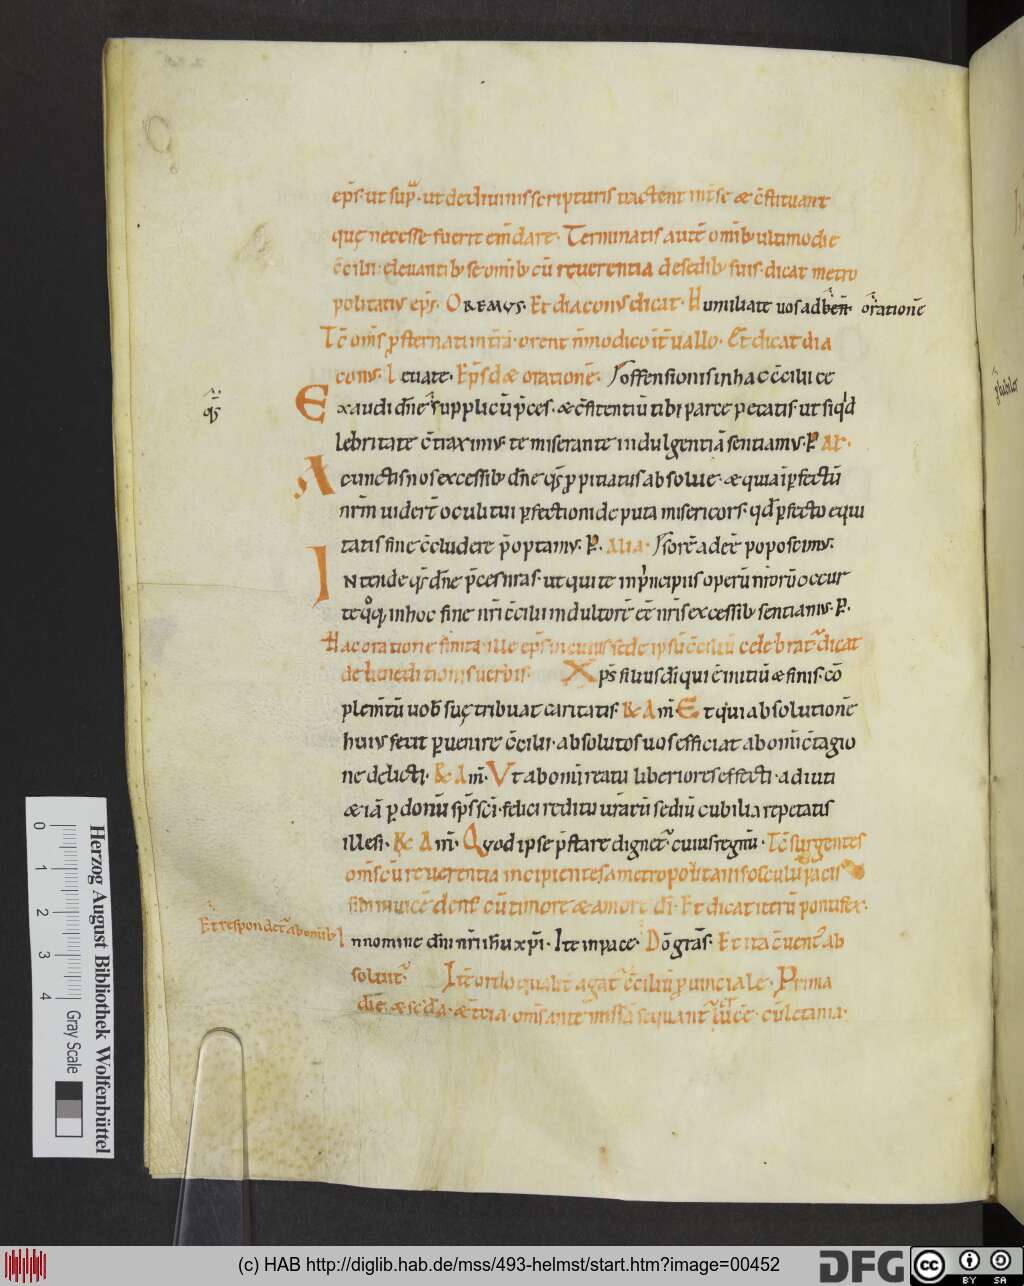 ep̄s· ut sup̄· ut de diuinis scripturis tractent int̄ se & c̄stituant
quę necesse fuerit em̄dare· Terminatis aut̄ omīb; ultimo die
c̄cilii· eleuantib; se omīb; cū reuerentia de sedib; suis· dicat metro
politanus ep̄s· OREMVS· Et diaconus dicat· Humiliate uos ad b̄en̄· orationē
Tc̄ om̄s p̄sternati in t̄rā· orent n̄ modico int̄uallo· Et dicat dia
conus· Leuate· Ep̄s d& orationē· offensionis in hac c̄cilii ce
Exaudi dn̄e supplicū p̄ces· & c̄fitentiū tibi parce peccatis· ut si qd̄
qs̄
lebritate c̄traximus· te miserante indulgentiā sentiamus· P̄ AL·
A cunctis nos excessib; dn̄e qs̄ p̄pitiatus absolue· & quia īp̄fectū
nr̄m uider̄t oculi tui p̄fectioni deputa misericors· qd̄ p̄fecto equi
tatis fine c̄cludere p̄optamus· P̄· ALIA· sorc̄ adec̄ poposcimus·
Intende qs̄ dn̄e p̄ces nr̄as· ut qui te in p̄ncipiis operū nr̄orū occur
re qq̄· in hoc fine nr̄i c̄cilii indultorē ēē nr̄is excessib; sentiamus· P̄·
Hac oratione finita ille ep̄s in cuius sede ipsū c̄ciliū celebrat̄ dicat
de benedictionis uerbis· Xp̄s filius di qui ē initiū & finis· cō
plem̄tū uob̄ suę tribuat caritatis· R& Am̄ Et qui absolutionē
huius fecit p̄uenire c̄cilii· absolutos uos efficiat ab omi c̄tagio
ne delicti· R& Am̄· Vt ab omi reatu liberiores effecti· adiuti
& iā p̄ donū sp̄s sc̄i· felici reditu ur̄arū sediū cubilia repetatis
illesi· R& Am̄· Quod ipse p̄stare dignet̄· cuius regnū· Tc̄ surgentes
om̄s cū reuerentia incipientes a metropolitanis osculū pacis
sibi inuicē dent̄ cū timore & amore di· Et dicat iterū pontifex·
Et respondet̄ ab omīb;
In nomine dn̄i nr̄i ih̄u xp̄i· Ite in pace· Dō gr̄as· Et ita c̄uent; ab
soluit̄· Itē ordo qualit̄ agat̄ c̄ciliū p̄uinciale· Prima
die· & sc̄da· & t̄cia· om̄s ante missā sequant̄ cū letania·
Herzog August Bibliothek Wolfenbüttel
Gray Scale
0 1 2 3 4
(c) HAB http://diglib.hab.de/mss/493-helmst/start.htm?image=00452
DFG
cc BY SA